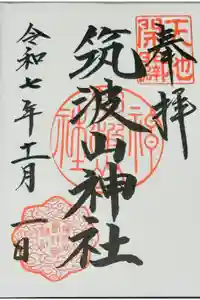 奉拝
天地
開闢
筑波山神社
令和七年十一月一日